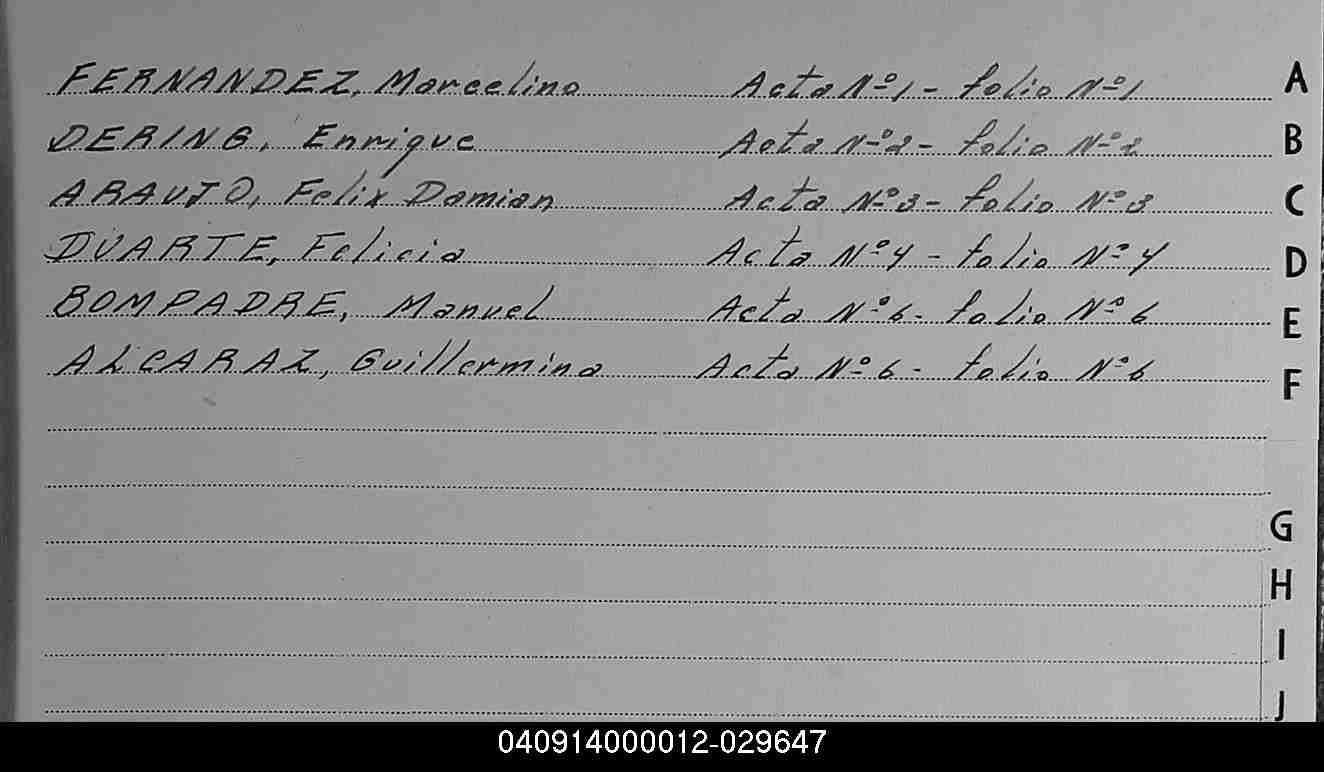 FERNANDEZ, Marcelino Acta Nº1 - folio Nº1 A
DERING, Enrique Acta Nº2 - folio Nº2 B
ARAUJO, Felix Damian Acta Nº3 - folio Nº3 C
DUARTE, Felicia Acta Nº4 - folio Nº4 D
BOMPADRE, Manuel Acta Nº6 - folio Nº6 E
ALCARAZ, Guillermina Acta Nº6 - folio Nº6 F
G
H
I
J
040914000012-029647